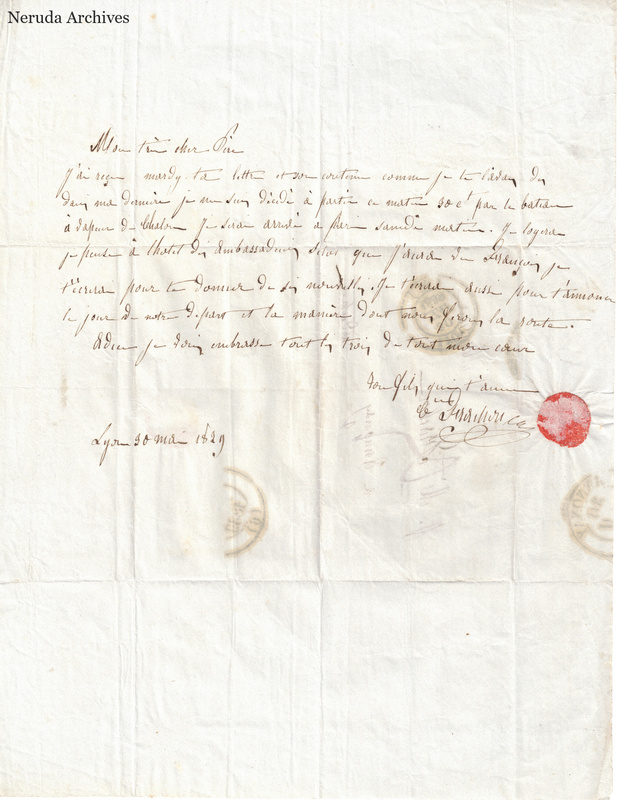 Neruda Archives
Mon très cher Père
J'ai reçu mardy ta lettre et son contenu comme je te l'avais dis
dans ma dernière je me suis décidé à partir ce matin 30 Ct par le bateau
à vapeur de Chalon Je serai arrivé a Paris samedi matin. Je logerai
je pense à l'hotel des Ambassadeurs Sitot que j'aurai vu François je
t'écrirai pour te donner de ses nouvelles. Je t'écrirai aussi pour t'annoncer
le jour de notre départ et la manière dont nous ferons la route.
Adieu je vous embrasse tout les trois de tout mon cœur
ton fils qui t'aime
Lyon 30 mai 1839